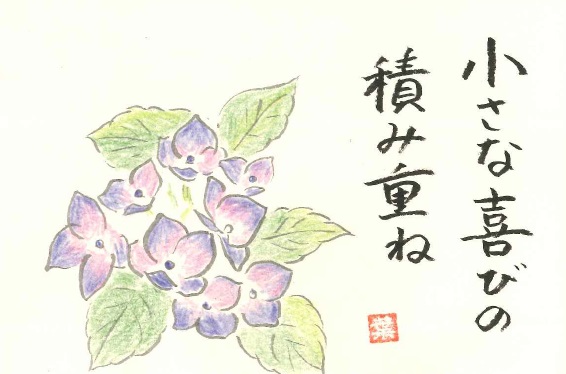 小さな喜びの
積み重ね
葉